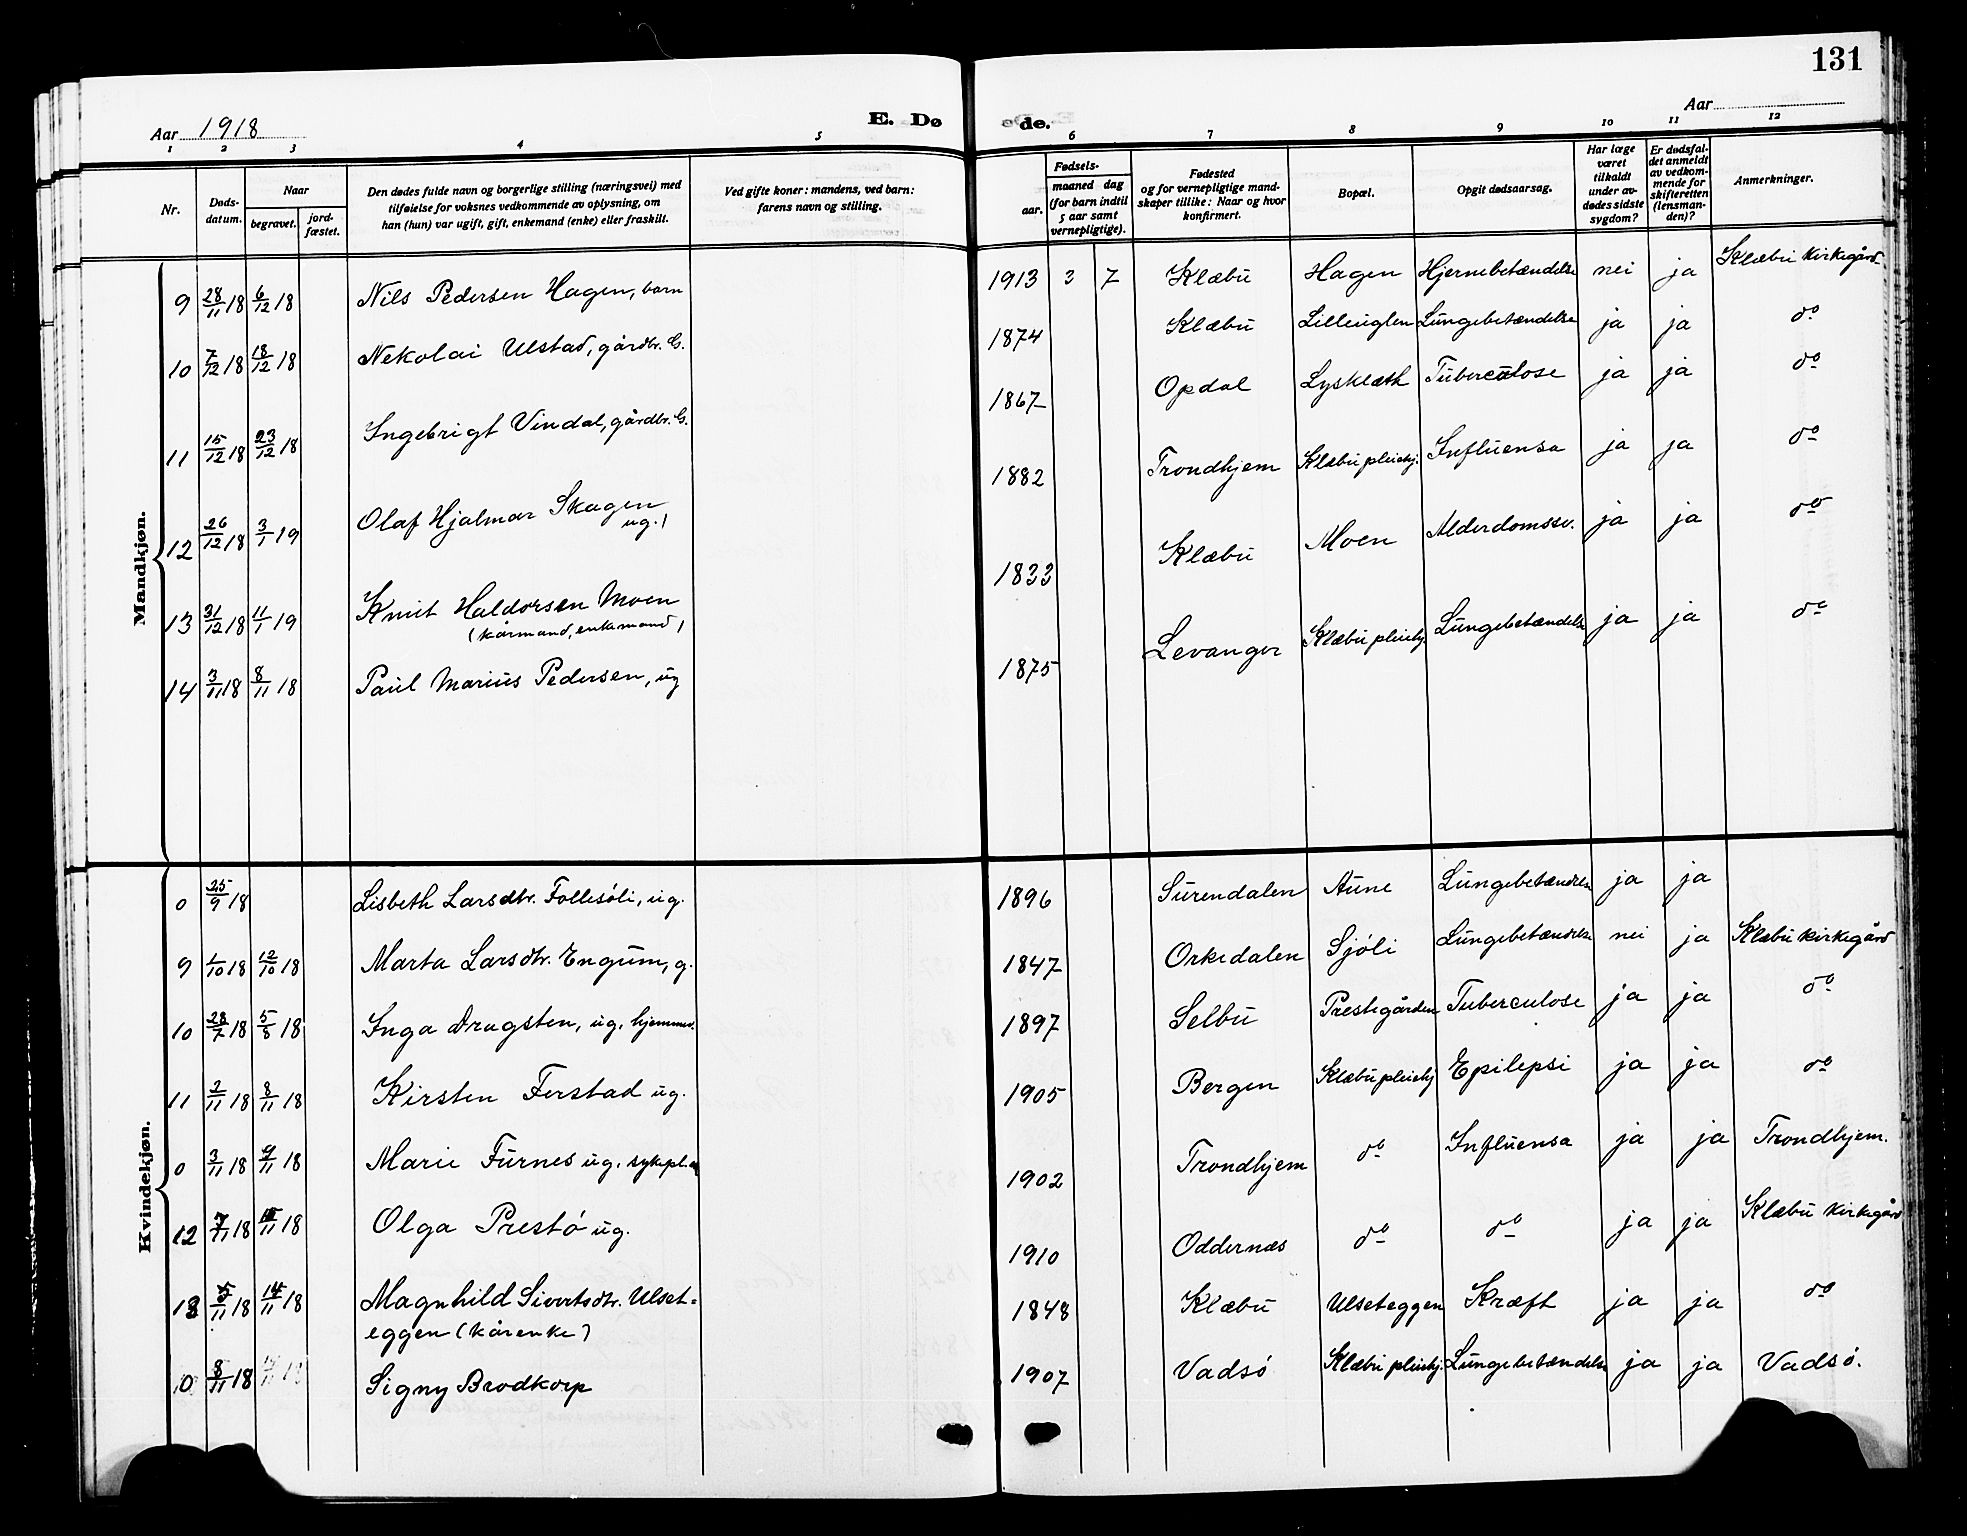 131
Aar 1918
E. Dø
de.
Aar
1 2 3 4 5 6 7 8 9 10 11 12
Nr.
Døds-
datum.
Naar
begravet.
jord-
fæstet.
Den dødes fulde navn og borgerlige stilling (næringsvei) med
tilføielse for voksnes vedkommende av oplysning, om
han (hun) var ugift, gift, enkemand (enke) eller fraskilt.
Ved gifte koner: mandens, ved barn:
farens navn og stilling.
Fødsels-
aar.
maaned dag
(for barn indtil
5 aar samt
vernepligtige).
Fødested
og for vernepligtige mand-
skaper tillike: Naar og hvor
konfirmert.
Bopæl.
Opgit dødsaarsag.
Har læge
været
tilkaldt
under av-
dødes sidste
sygdom?
Er dødsfal-
det anmeldt
av vedkom-
mende for
skifteretten
(lensman-
den)?
Anmerkninger.
Mandkjøn.
9 28/11 18 6/12 18 Nils Pedersen Hagen, barn 1913 3 7 Klæbu Hagen Hjernebetændelse nei ja Klæbu Kirkegård
10 7/12 18 18/12 18 Nekolai Ulstad, gårdbr. G. 1874 Klæbu Lilleuglen Lungebetændelse ja ja do
11 15/12 18 23/12 18 Ingebrigt Vindal, gårdbr. G. 1867 Opdal Lysklæth Tuberculose ja ja do
12 26/12 18 3/1 19 Olaf Hjalmar Skagen 1882 Trondhjem Klæbu pleiehj. Influensa ja ja do
ug.)
13 31/12 18 11/1 19 Knut Haldorsen Moen 1833 Klæbu Moen Alderdomssv. ja ja do
(kårmand, enkemand)
14 3/11 18 8/11 18 Paul Marius Pedersen, ug 1875 Levanger Klæbu pleiehj Lungebetændelse ja ja do
Kvindekjøn.
0 25/9 18 Lisbeth Larsdtr. Follesöli, ug. 1896 Surendalen Aune Lungebetændelse ja ja
9 1/10 18 12/10 18 Marta Larsdtr. Engum, g. 1847 Orkedalen Sjöli Lungebetændelse nei ja Klæbu Kirkegård
10 28/7 18 5/8 18 Inga Dragsten, ug. hjemmev. 1897 Selbu Prestegården Tuberculose ja ja do
11 2/11 18 8/11 18 Kirsten Ferstad ug. 1905 Bergen Klæbu pleiehj Epilepsi ja ja do
0 3/11 18 9/11 18 Marie Furnes ug. sykepl. 1902 Trondhjem do Influensa ja ja Trondhjem.
12 7/11 18 15/11 18 Olga Prestö ug. 1910 Oddernæs do do ja ja Klæbu Kirkegård
13 5/11 18 14/11 18 Magnhild Sivertsdtr. Ulset- 1848 Klæbu Ulseteggen Kræft ja ja do
eggen (kårenke)
0 8/11 18 Signy Brodkorp 1907 Vadsö Klæbu pleiehj. Lungebetændelse ja ja Vadsö.